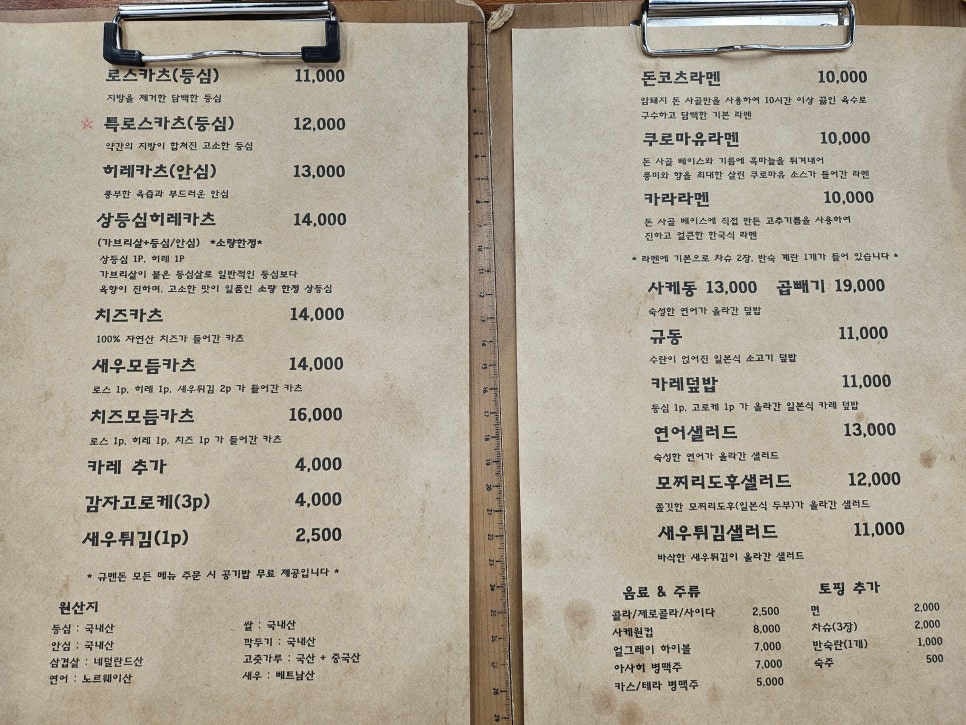 로스카츠(등심) 11,000
지방을 제거한 담백한 등심
특로스카츠(등심) 12,000
약간의 지방이 합쳐진 고소한 등심
히레카츠(안심) 13,000
풍부한 육즙과 부드러운 안심
상등심히레카츠 14,000
(가브리살+등심/안심) *소량한정*
상등심 1P, 히레 1P
가브리살이 붙은 등심살로 일반적인 등심보다
육향이 진하며, 고소한 맛이 일품인 소량 한정 상등심
치즈카츠 14,000
100% 자연산 치즈가 들어간 카츠
새우모듬카츠 14,000
로스 1p, 히레 1p, 새우튀김 2p 가 들어간 카츠
치즈모듬카츠 16,000
로스 1p, 히레 1p, 치즈 1p 가 들어간 카츠
카레 추가 4,000
감자고로케(3p) 4,000
새우튀김(1p) 2,500
* 규멘돈 모든 메뉴 주문 시 공기밥 무료 제공입니다 *
원산지
등심 : 국내산
안심 : 국내산
삼겹살 : 네덜란드산
연어 : 노르웨이산
쌀 : 국내산
깍두기 : 국내산
고춧가루 : 국산 + 중국산
새우 : 베트남산
돈코츠라멘 10,000
암퇘지 돈 사골만을 사용하여 10시간 이상 끓인 육수로
구수하고 담백한 기본 라멘
쿠로마유라멘 10,000
돈 사골 베이스와 기름에 흑마늘을 튀겨내어
풍미와 향을 최대한 살린 쿠로마유 소스가 들어간 라멘
카라라멘 10,000
돈 사골 베이스에 직접 만든 고추기름을 사용하여
진하고 얼큰한 한국식 라멘
* 라멘에 기본으로 차슈 2장, 반숙 계란 1개가 들어 있습니다 *
사케동 13,000 곱빼기 19,000
숙성한 연어가 올라간 덮밥
규동 11,000
수란이 얹어진 일본식 소고기 덮밥
카레덮밥 11,000
등심 1p, 고로케 1p 가 올라간 일본식 카레 덮밥
연어샐러드 13,000
숙성한 연어가 올라간 샐러드
모찌리도후샐러드 12,000
쫄깃한 모찌리도후(일본식 두부)가 올라간 샐러드
새우튀김샐러드 11,000
바삭한 새우튀김이 올라간 샐러드
음료 & 주류
콜라/제로콜라/사이다 2,500
사케원컵 8,000
얼그레이 하이볼 7,000
아사히 병맥주 7,000
카스/테라 병맥주 5,000
토핑 추가
면 2,000
차슈(3장) 2,000
반숙란(1개) 1,000
숙주 500